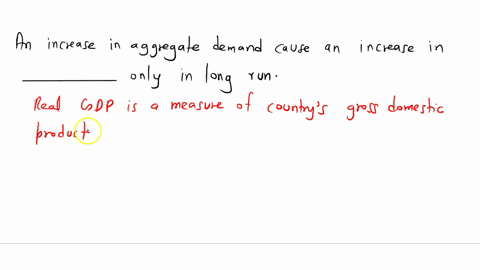 An increase in aggregate demand cause an increase in
__________ only in long run.
Real GDP is a measure of country's gross domestic
product